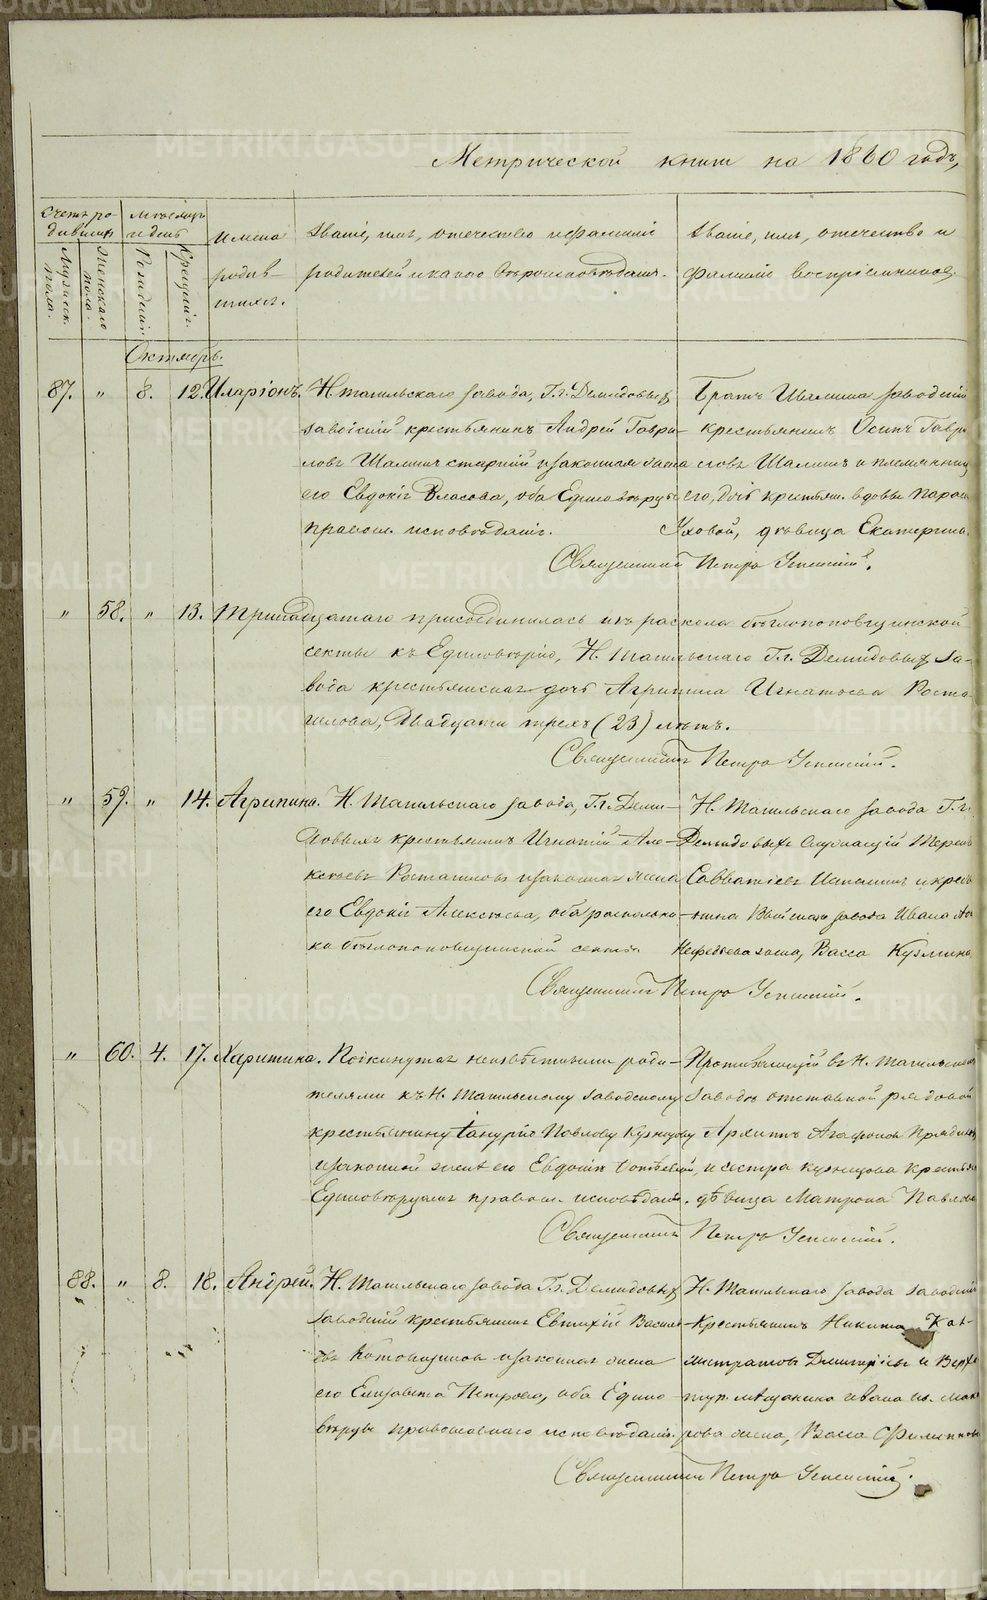 Метрической книги на 1860 годъ,
Счетъ ро-
дившихся
Мужеск.
пола.
Женскаго
пола.
Мѣсяцъ
и день
Рожденія.
Крещенія.
Имена
родив-
шихся.
Званіе, имя, отечество и фамилія
родителей и какого вѣроисповѣданія.
Званіе, имя, отечество и
фамилія воспріемниковъ.
Октябрь.
87. " 8. 12. Иларіонъ. Н. тагильскаго завода, Г.г. Демидовыхъ
заводскій крестьянинъ Андрей Гаври-
ловъ Шалинъ старшій и законная жена
его Евдокія Власова, оба Единовѣрцы
правосл. исповѣданія.
Братъ Шалина заводскій
крестьянинъ Осипъ Гаври
ловъ Шалинъ и племянница
его, дочь крестьян. вдовы
Уховой, дѣвица Екатерина.
Священникъ Петръ Успенскій.
" 58. " 13. Тринадцатаго присоединилась изъ раскола бѣглопоповщинской
секты къ Единовѣрію, Н. Тагильскаго Г.г. Демидовыхъ за-
вода крестьянская дочь Агрипина Игнатьева Роста-
шлова, двадцати трехъ (23) лѣтъ.
Священникъ Петръ Успенскій.
" 59. " 14. Агрипина. Н. Тагильскаго завода, Г.г. Деми-
довыхъ крестьянинъ Игнатій Але-
ксѣевъ и законная жена
его Евдокія Алексѣева, оба раскольни-
ки бѣглопоповщинской секты.
Н. Тагильскаго завода Г.г.
Демидовыхъ служащій
Савватіевъ и кресть
Выйскаго завода Ивана
Нефедьева жена, Васса Кузмина
Священникъ Петръ Успенскій.
" 60. 4. 17. Харитина. Подкинутая неизвѣстными роди-
телями къ Н. Тагильскому заводскому
крестьянину Павлову Кузнецову
и законной женѣ его Евдокіи
Единовѣрцамъ правосл. исповѣданія.
Проживающій въ Н. Тагильскомъ
заводѣ отставной рядовой
Архипъ Агафонов
и сестра Кузнецова крестьян
дѣвица Матрона Павлова
Священникъ Петръ Успенскій.
88. " 8. 18. Андрей. Н. Тагильскаго завода Г.г. Демидовыхъ
заводскій крестьянинъ Евтихій Василь-
евъ и законная жена
его Елизавета Петрова, оба Едино-
вѣрцы православнаго исповѣданія.
Н. Тагильскаго завода заводскій
крестьянинъ Никита
Дмитріевъ и Верхо
тур. мѣщанина Ивана Ив.
рова жена, Васса Филиппова
Священникъ Петръ Успенскій.
METRIKI.GASO-URAL.RU